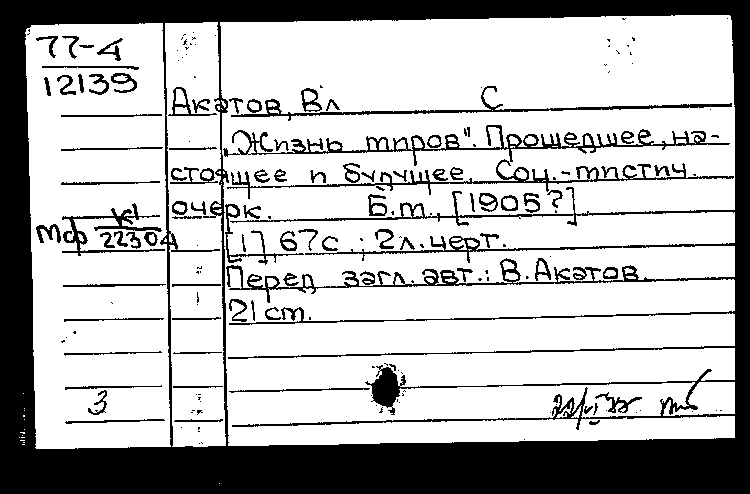 77-4
12139
Акатов, Вл С
„Жизнь миров". Прошедшее, на-
стоящее и будущее. Соц.-мистич.
очерк. Б.м., [1905?]
Мф К1
22304
[1], 67с.; 2л. черт.
Перед загл. авт.: В. Акатов.
21 cm.
3